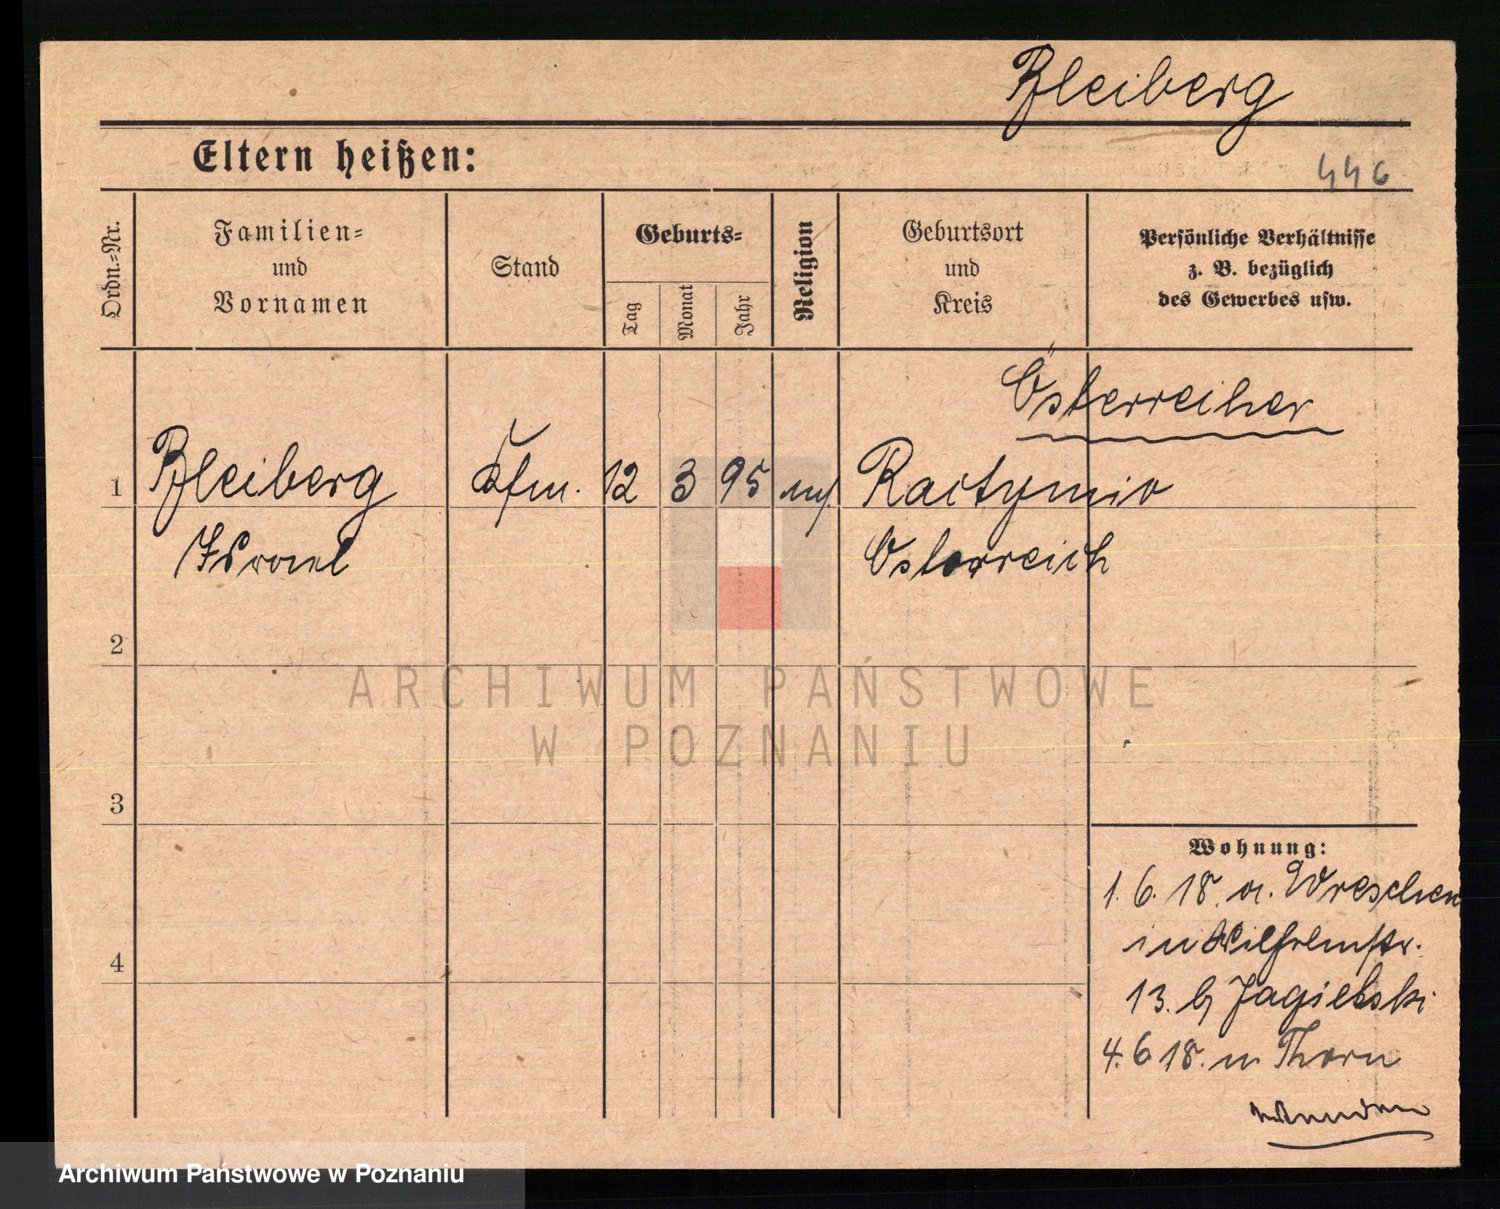 Bleiberg
Eltern heißen:
446
Ordn.-Nr.
Familien-
und
Vornamen
Stand
Geburts-
Tag
Monat
Jahr
Religion
Geburtsort
und
Kreis
Persönliche Verhältnisse
z. B. bezüglich
des Gewerbes usw.
Österreiher
1 Bleiberg Kfm. 12 3 95 Ractymio
Israel Österreich
2
3
4
Wohnung:
1. 6. 18. a. Wreschen
in Wilhelmstr.
13. b/ Jagielski
4. 6 18. n Thorn
wenden
ARCHIWUM PAŃSTWOWE
W POZNANIU
Archiwum Państwowe w Poznaniu